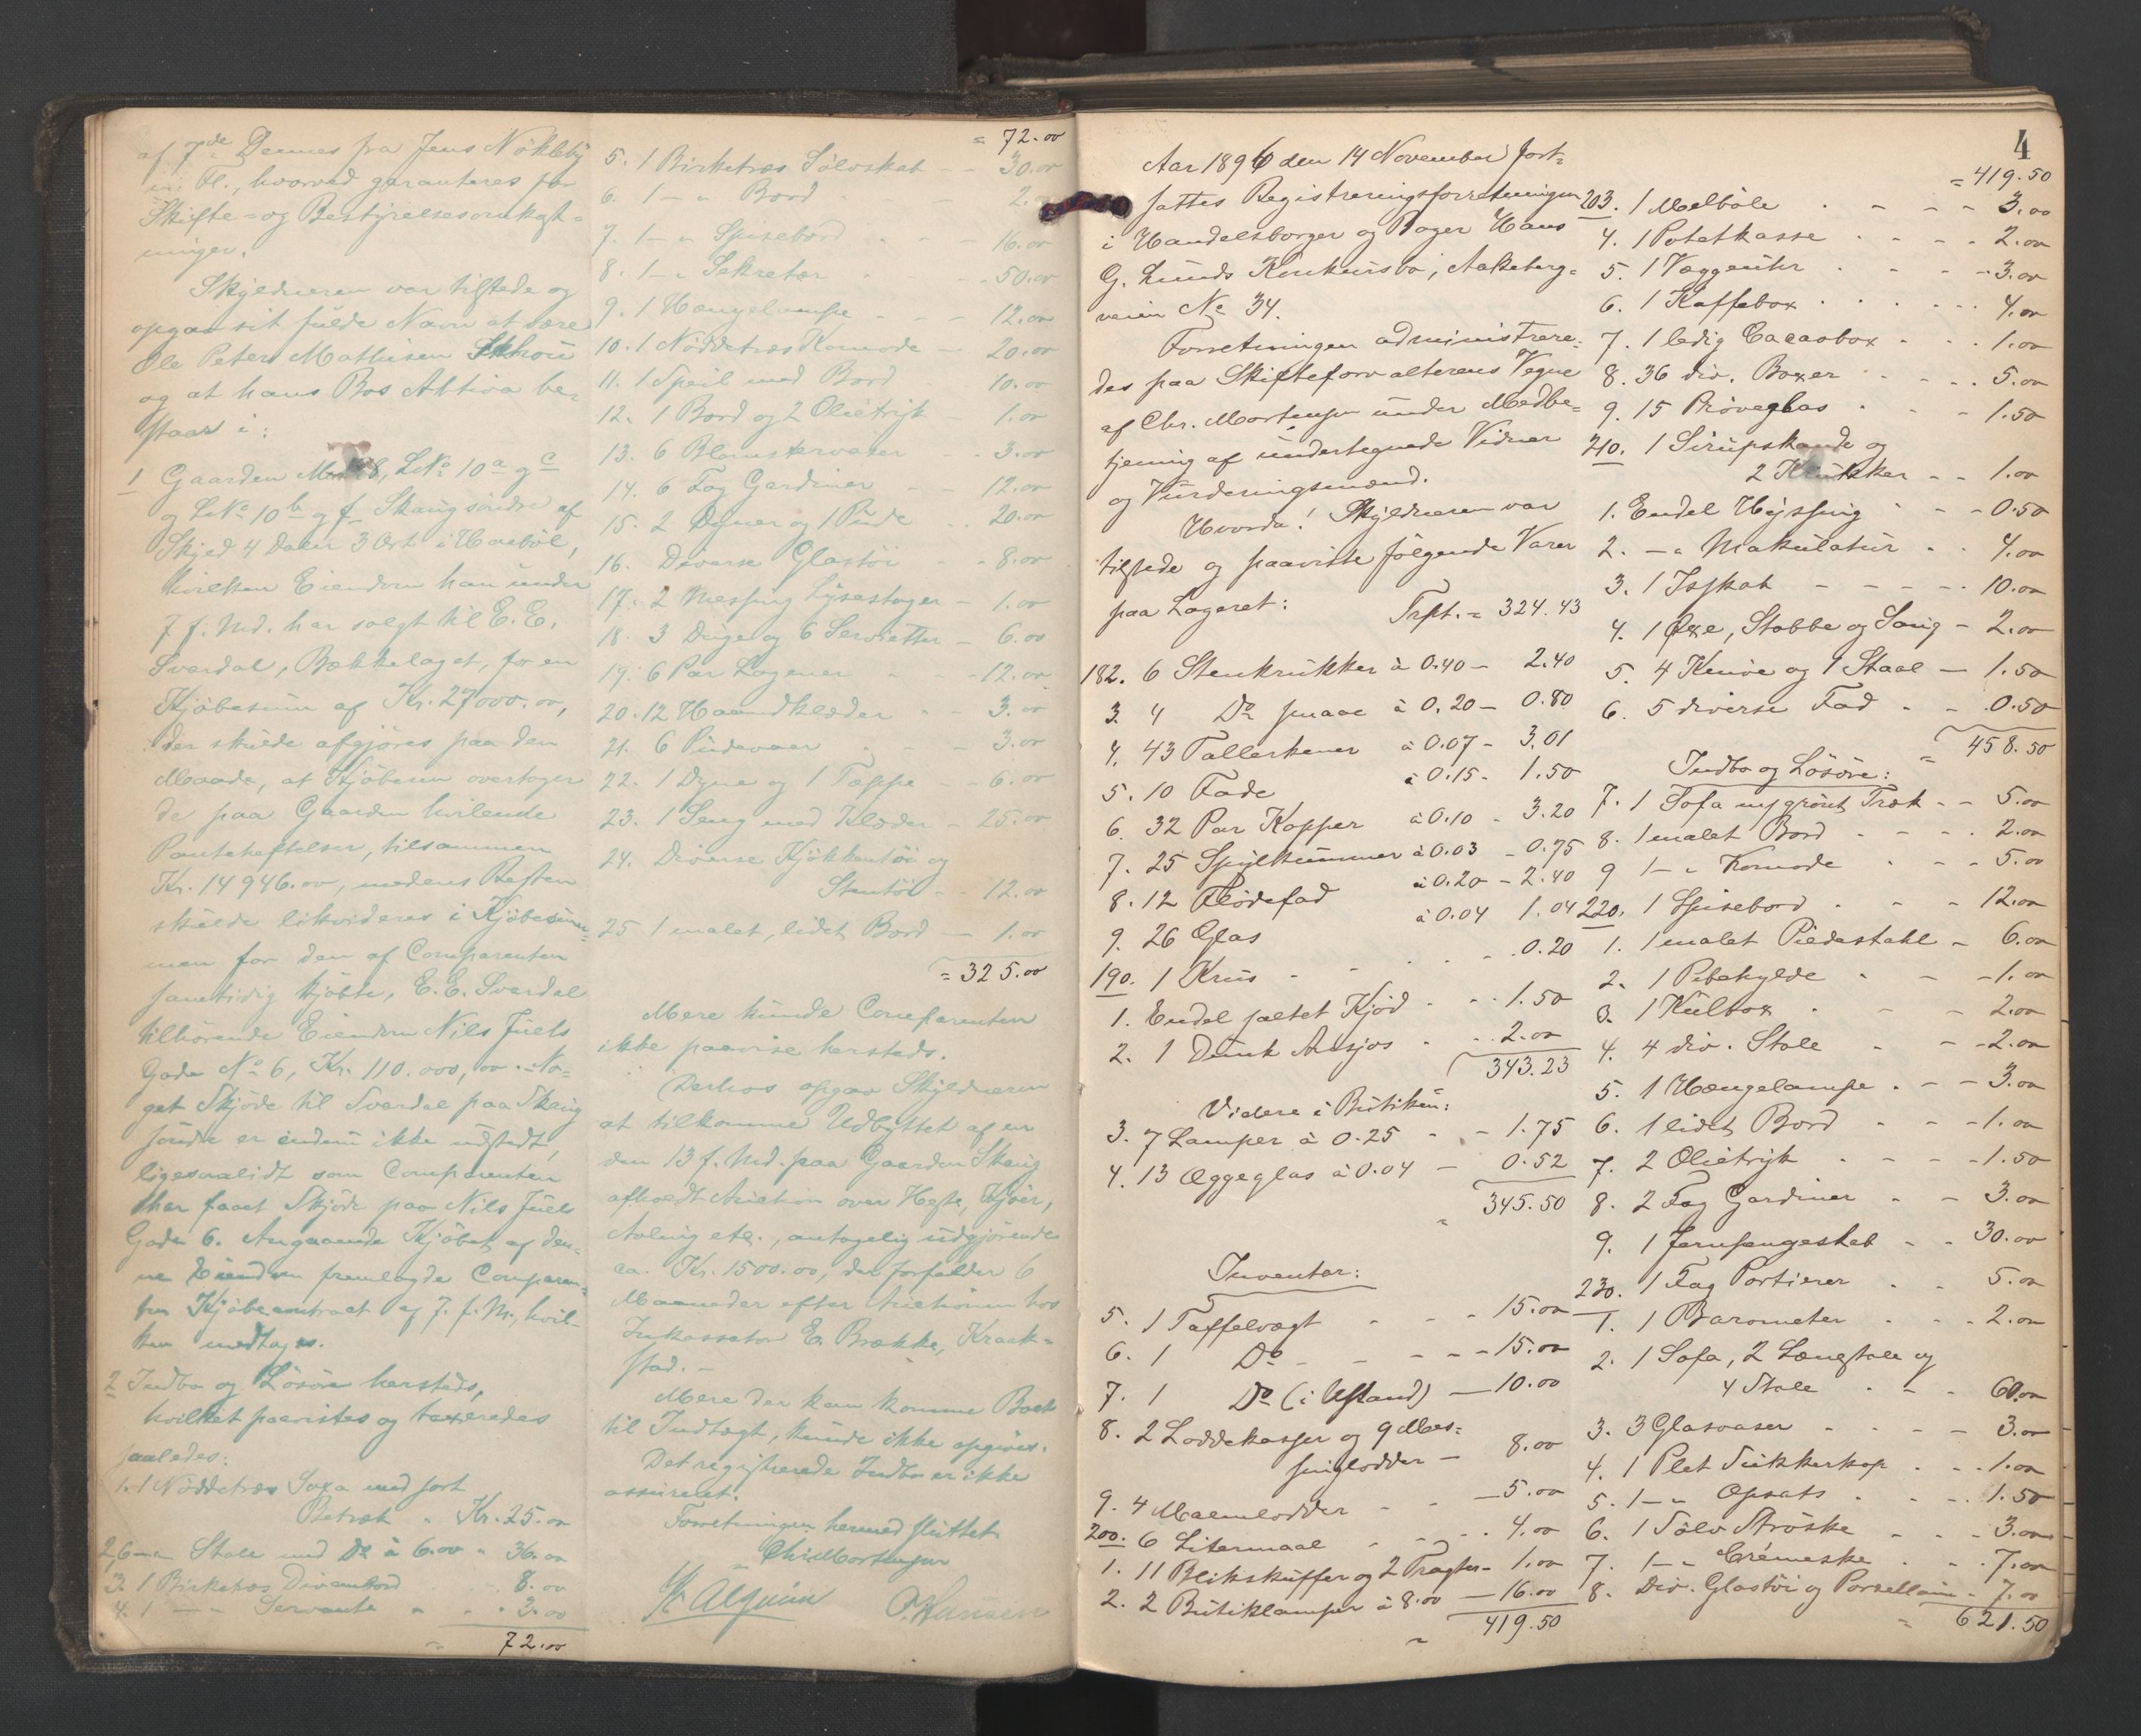 af 7de Dennes fra Jens Nökleby
hvorved garanteres for
Skifte- og Bestyrelsesomkost-
ninger.
Skyldneren var tilstede og
opgav sit fulde Navn at være
Ole Peter Mathisen
og at hans Bos Aktiva be-
staar i:
1 Gaarden M No 8, L No 10 a g c
og L No 10 b g f Skaug søndre af
Skyld 4 Daler 3 Ort i
hvilken Eiendom han under
7 f. Md. har solgt til E. E.
Svardal, Bækkelaget, for en
Kjöbesum af Kr. 27000.00,
der skulde afgjöres paa den
Maade, at Kjöberen overtager
de paa Gaarden hvilende
Panteheftelser, tilsammen
Kr. 14946.00, medens Resten
skulde likvideres i Kjöbesum-
men for den af Comparenten
samtidig kjöbte, E. E. Svardal
tilhörende Eiendom Nils Juels
Gade No 6, Kr. 110.000,00. No-
get Skjöde til Svardal paa Skaug
söndre er endnu ikke udstedt,
ligesaalidt som Comparenten
har faaet Skjöde paa Nils Juels
Gade 6. Angaaende Kjöbet af den-
ne Eiendom fremlagde Comparen-
ten Kjöbecontract af 7. f. M., hvil-
ken medtages.
2 Indbo og Lösöre hersteds,
hvilket paavistes og taxeredes
saaledes:
1. 1 Nöddetræs Sofa med sort
Betræk " Kr. 25.00
2. 6 - " Stole med Do à 6.00 " 36.00
3. 1 Birketræs Divanbord 8.00
4. 1 - " Servante " 3.00
= 72.00
= 72.00
5. 1 Birketræs Sölvskab - - 30.00
6. 1 - " Bord - 2.
7. 1 - " Spisebord - - 16.00
8. 1 - " Sekretær - - 50.00
9. 1 Hængelampe - - - 12.00
10. 1 Nöddetræs Komode - 20.00
11. 1 Speil med Bord 10.00
12. 1 Bord og 2 Olietryk - 1.00
13. 6 Blomstervaser - - 3.00
14. 6 Fag Gardiner - - 12.00
15. 2 Dyner og 1 Pude - - 20.00
16. Diverse Glastöi - - 8.00
17. 2 Messing Lysestager - 1.00
18. 3 Duge og 6 Servietter - 6.00
19. 6 Par Lagener - - - 12.00
20. 12 Haandklæder - - 3.00
21. 6 Pudevaar - - - 3.00
22. 1 Dyne og 1 Tæppe - - 6.00
23. 1 Seng med Klæder - 25.00
24. Diverse Kjökkentöi og
Stentöi - - 12.00
25 1 malet, lidet Bord - 1.00
= 325.00
Mere kunde Comparenten
ikke paavise hersteds.
Derhos opgav Skyldneren
at tilkomme Udbyttet af en
den 13 f. Md. paa Gaarden Skaug
afholdt Auktion over Heste, Kjöer,
Avling etc., antagelig udgjörende
ca. Kr. 1500.00, der forfalder 6
Maaneder efter Auktionen hos
Inkassator E. Brække, Kraak-
stad. -
Mere der kan komme Boet
til Indtægt, kunde ikke opgives.
Det registrerede Indbo er ikke
assureret.
Forretningen hermed sluttet.
Chr. Mortensen
Alquim
O. Hansen
4
Aar 1896 den 14 November fort-
sattes Registreringsforretningen
i Handelsborger og Bager Hans
G. Lunds Konkursbo, Aakeberg-
veien No 34.
Forretningen administrere-
des paa Skifteforvalterens Vegne
af Chr. Mortensen under Medbe-
tjening af undertegnede Vidner
og Vurderingsmænd.
Hvorda! Skyldneren var
tilstede og paaviste følgende Varer
paa Lageret: Trpt. = 324.43
182. 6 Stenkrukker à 0.40 - 2.40
3. 4 Do smaa à 0.20 - 0.80
4. 43 Tallerkener à 0.07 - 3.01
5. 10 Fade à 0.15 - 1.50
6. 32 Par Kopper à 0.10 - 3.20
7. 25 Spylkummer à 0.03 - 0.75
8. 12 Flödefad à 0.20 - 2.40
9. 26 Glas à 0.04 1.04
190. 1 Krus - - - - 0.20
1. Endel saltet Kjöd - - 1.50
2. 1 Dunk Ansjos - - 2.00
343.23
Videre i Butiken:
3. 7 Lamper à 0.25 - - 1.75
4. 13 Æggeglas à 0.04 - 0.52
= 345.50
Inventar:
5. 1 Taffelvægt - - - 15.00
6. 1 Do - - - - - 15.00
7. 1 Do (i Ustand) - 10.00
8. 2 Loddekasser og 9 Mes-
singlodder - 8.00
9. 4 Malmlodder - - - 5.00
200. 6 Litermaal - - - 4.00
1. 11 Blikskuffer og 2 Tragter - 1.00
2. 2 Butiklamper à 8.00 - 16.00
= 419.50
= 419.50
203. 1 Melböle - - - - 3.00
4. 1 Potetkasse - - - - 2.00
5. 1 Væggeuhr - - - 3.00
6. 1 Kaffebox - - - - 4.00
7. 1 ledig Cacaobox - - - 1.00
8. 36 div. Boxer - - - - 5.00
9. 15 Pröveglas - - - 1.50
210. 1 Sirupskande og
2 Krukker - - 1.00
1. Endel Hyssing - - - 0.50
2. - " Makulatur - - 4.00
3. 1 Isskab - - - - - 10.00
4. 1 Øxe, Stabbe og Saug - 2.00
5. 4 Knive og 1 Staal - 1.50
6. 5 diverse Fad - - 0.50
= 458.50
Indbo og Lösöre:
7. 1 Sofa m/ grönt Træk - - 5.00
8. 1 malet Bord - - - - 2.00
9 1 - " Komode - - - 5.00
220. 1 Spisebord - - - 12.00
1. 1 malet Piedestahl - 6.00
2. 1 Pibehylde - - - 1.00
3. 1 Kulbox - - - 2.00
4. 4 div. Stole - - 2.00
5. 1 Hængelampe - - - 3.00
6. 1 lidet Bord - - - 1.00
7. 2 Olietryk - - - - 1.50
8. 2 Fag Gardiner - - 3.00
9. 1 Jernpengeskab - - 30.00
230. 1 Fag Portierer - - 5.00
1. 1 Barometer - - - 2.00
2. 1 Sofa, 2 Lænestole og
4 Stole - - - 60.00
3. 3 Glasvaser - - - - 3.00
4. 1 Plet Sukkerkop - - - 1.00
5. 1 - " Opsats - - - 1.50
6. 1 Sölv Ströske - - - 3.00
7. 1 - " Crémeske - - - 7.00
8. Div. Glastöi og Porsellain - 7.00
= 621.50